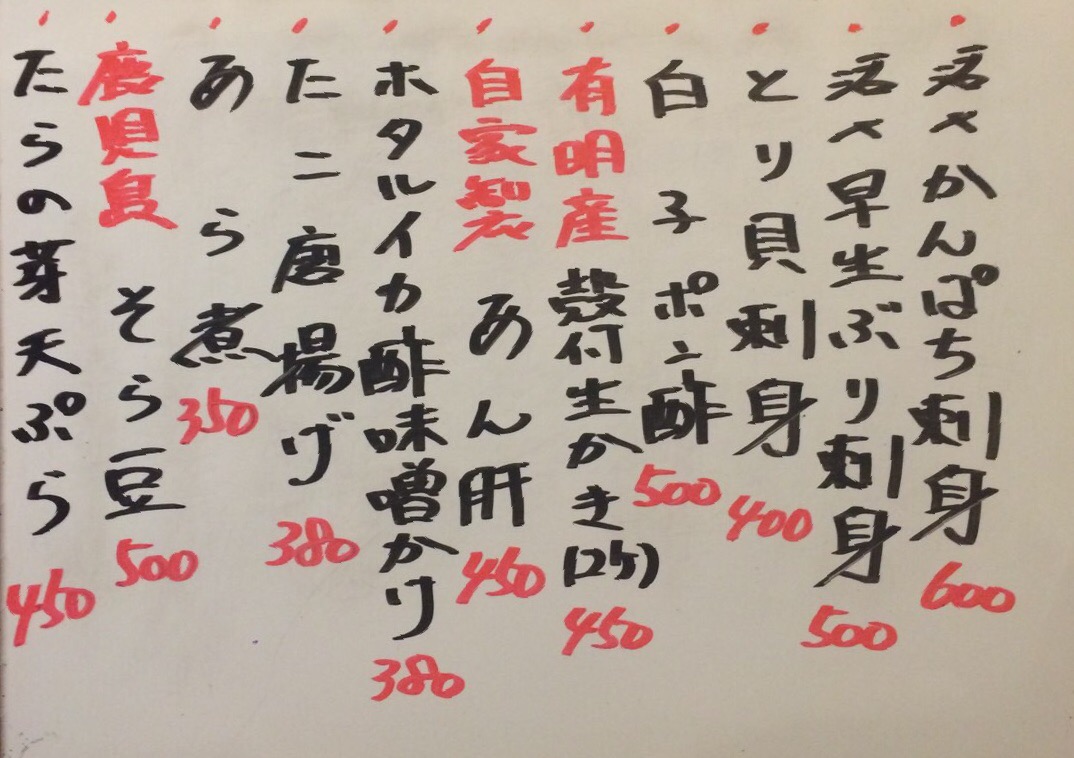 活〆かんぱち刺身 600
活〆早生ぶり刺身 500
とり貝刺身 400
白子ポン酢 500
有明産 殻付生かき(2ケ) 450
自家製 あん肝 450
ホタルイカ酢味噌かけ 380
たこ唐揚げ 380
あら煮 350
鹿児島 そら豆 500
たらの芽天ぷら 450